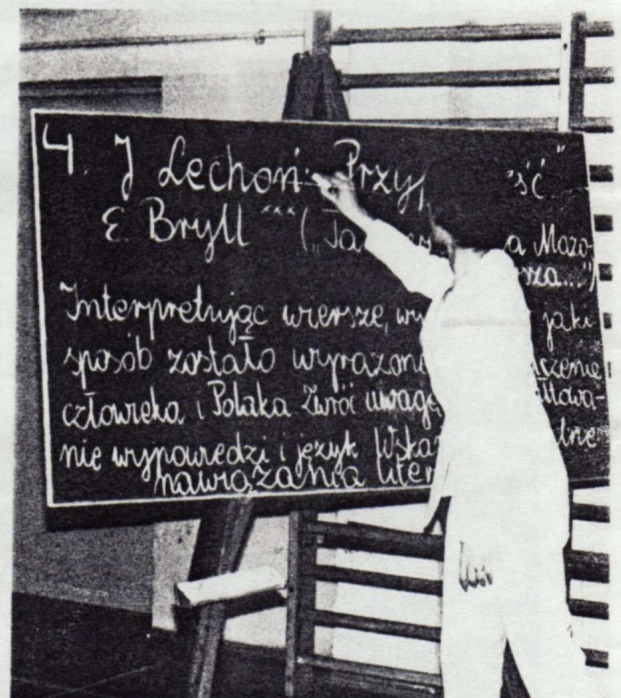 4. J Lechoń: „Przy
E. Bryll *** („Ta a Mazo
sza...")
Interpretując wiersze, wy jaki
sposób zostało wyrażone czenie
człowieka i Polaka Zwróć uwagę łtowa-
nie wypowiedzi i język Wska
nawiązania liter